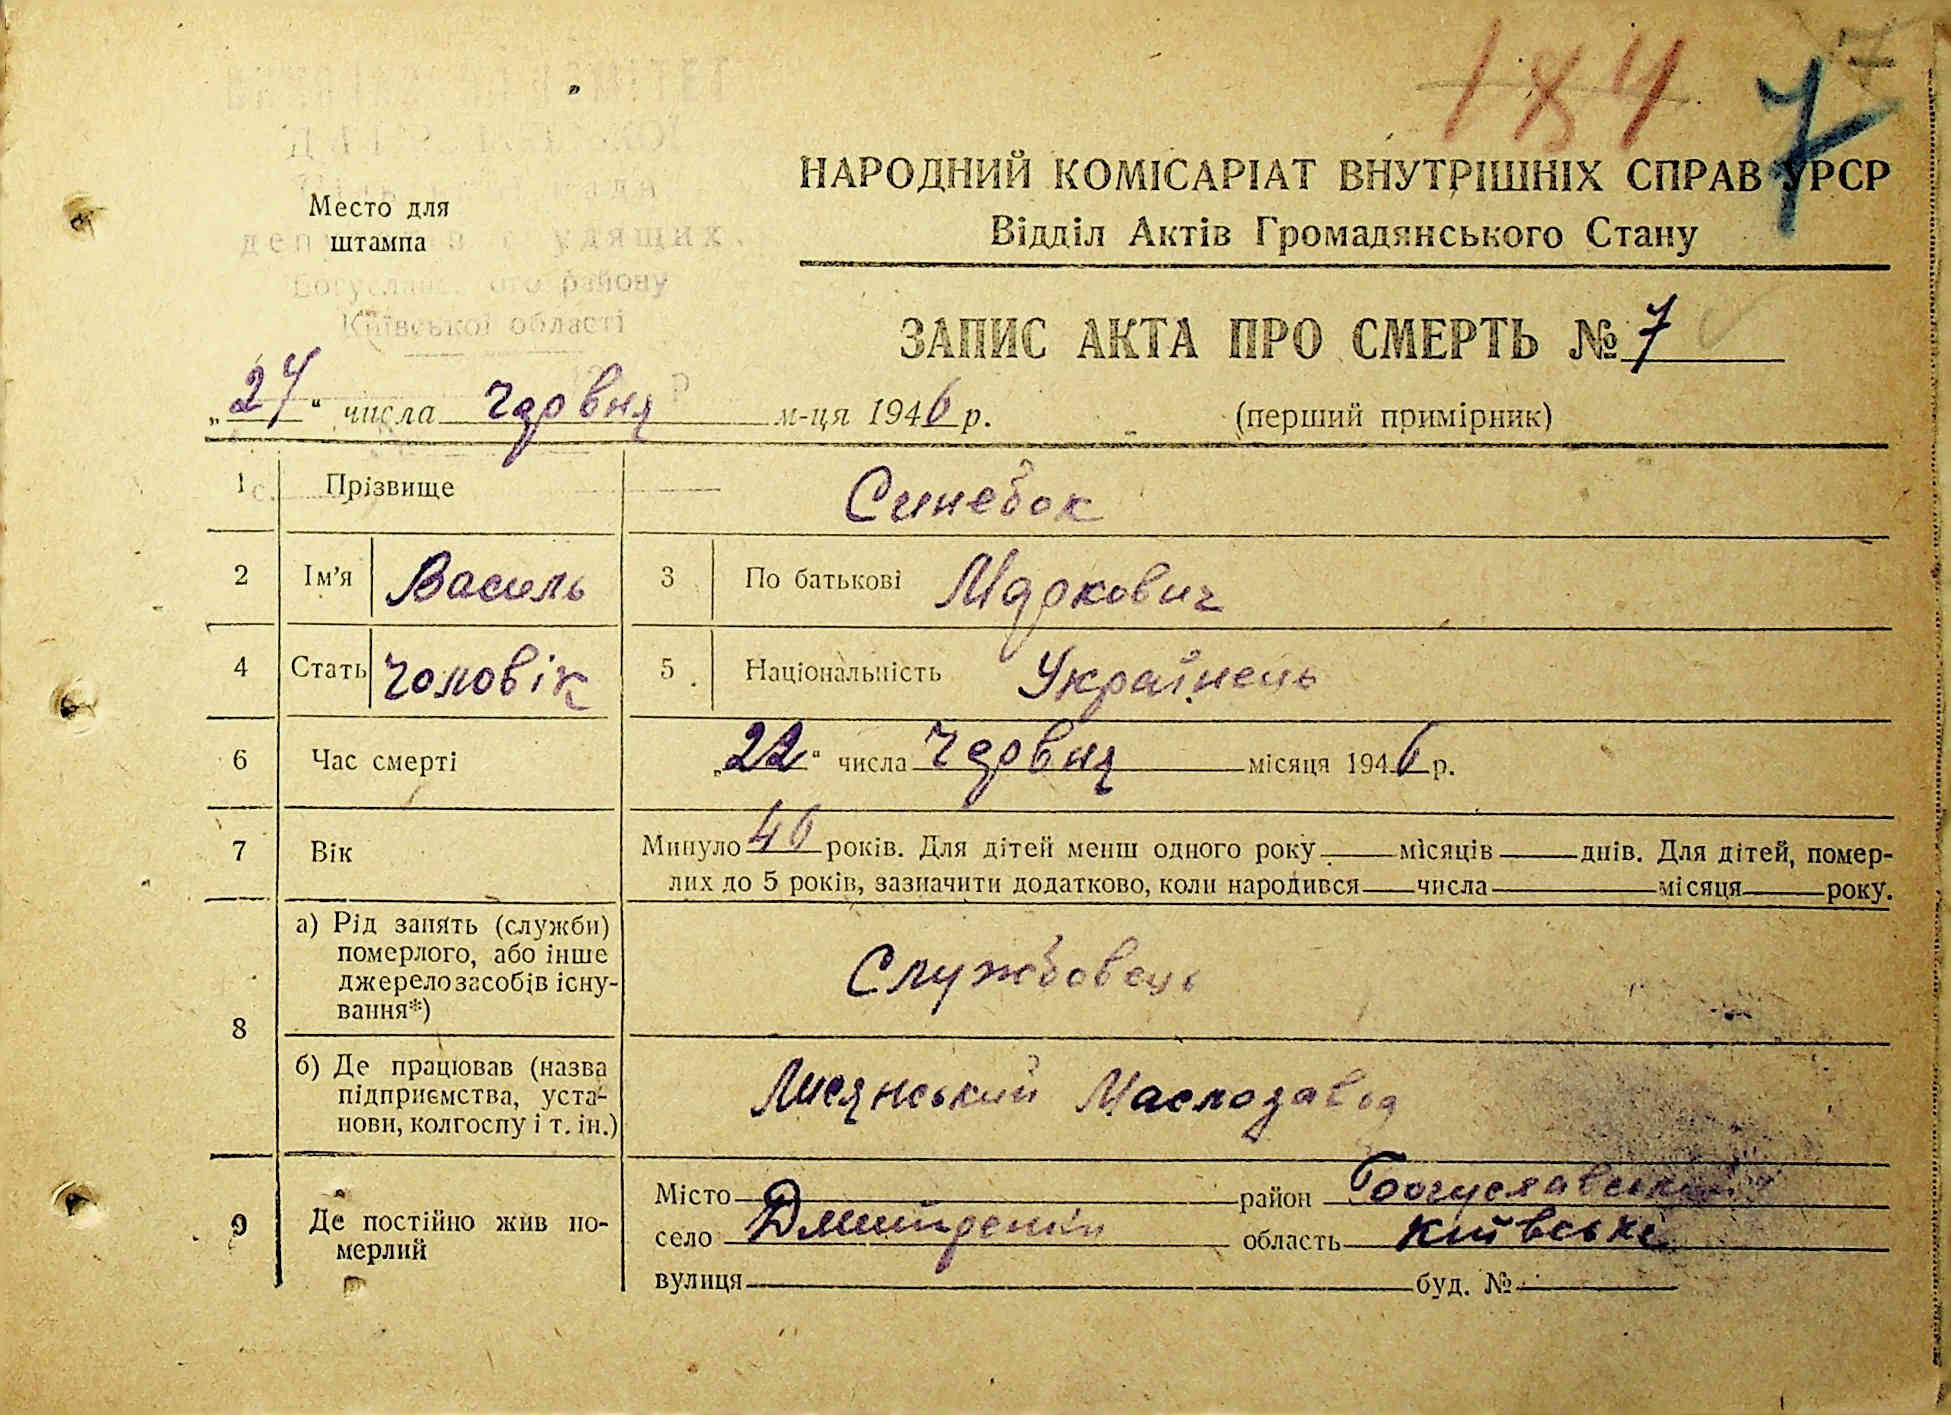 184 7
НАРОДНИЙ КОМІСАРІАТ ВНУТРІШНІХ СПРАВ УРСР
Відділ Актів Громадянського Стану
Место для
штампа
Богуславського району
Київської області
ЗАПИС АКТА ПРО СМЕРТЬ № 7
„24" числа червня м-ця 1946 р. (перший примірник)
1 Прізвище Синебок
2 Ім'я Василь 3 По батькові Маркович
4 Стать Чоловік 5 Національність Українець
6 Час смерті „22" числа Червня місяця 1946 р.
7 Вік Минуло 46 років. Для дітей менш одного року місяців днів. Для дітей, помер-
лих до 5 років, зазначити додатково, коли народився числа місяця року.
8 а) Рід занять (служби)
померлого, або інше
джерело засобів існу-
вання*) Службовець
б) Де працював (назва
підприємства, уста-
нови, колгоспу і т. ін.) Лисянський Маслозавод
9 Де постійно жив по-
мерлий
Місто район Богуславський
село Дмитренки область Київська
вулиця буд. №